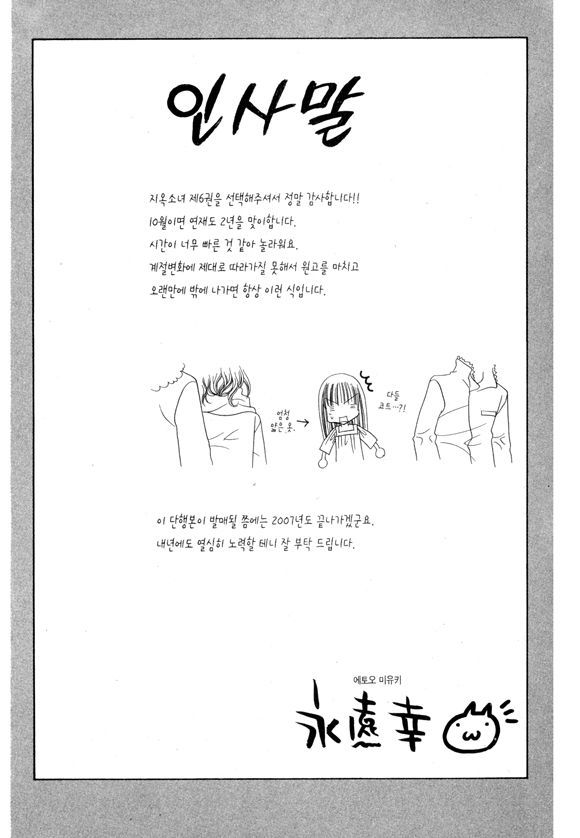 인사말
지옥소녀 제6권을 선택해주셔서 정말 감사합니다!!
10월이면 연재도 2년을 맞이합니다.
시간이 너무 빠른 것 같아 놀라워요.
계절변화에 제대로 따라가질 못해서 원고를 마치고
오랜만에 밖에 나가면 항상 이런 식입니다.
엄청
얇은 옷.
다들
코트…?!
이 단행본이 발매될 쯤에는 2007년도 끝나가겠군요.
내년에도 열심히 노력할 테니 잘 부탁 드립니다.
에토오 미유키
永遠幸